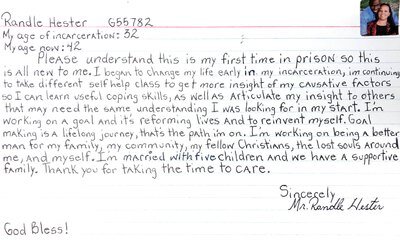 Randle Hester G55782
My age of incarceration: 32
My age now: 42
Please understand this is my first time in prison so this
is all new to me. I began to change my life early in my incarceration, im continuing
to take different self help class to get more insight of my causative factors
so I can learn useful coping skills, as well as articulate my insight to others
that may need the same understanding I was looking for in my start. I'm
working on a goal and it's reforming lives and to reinvent myself. Goal
making is a lifelong journey, that's the path i'm on. I'm working on being a better
man for my family, my community, my fellow Christians, the lost souls around
me, and myself. I'm married with five children and we have a supportive
family. Thank you for taking the time to care.
Sincerely
Mr. Randle Hester
God Bless!